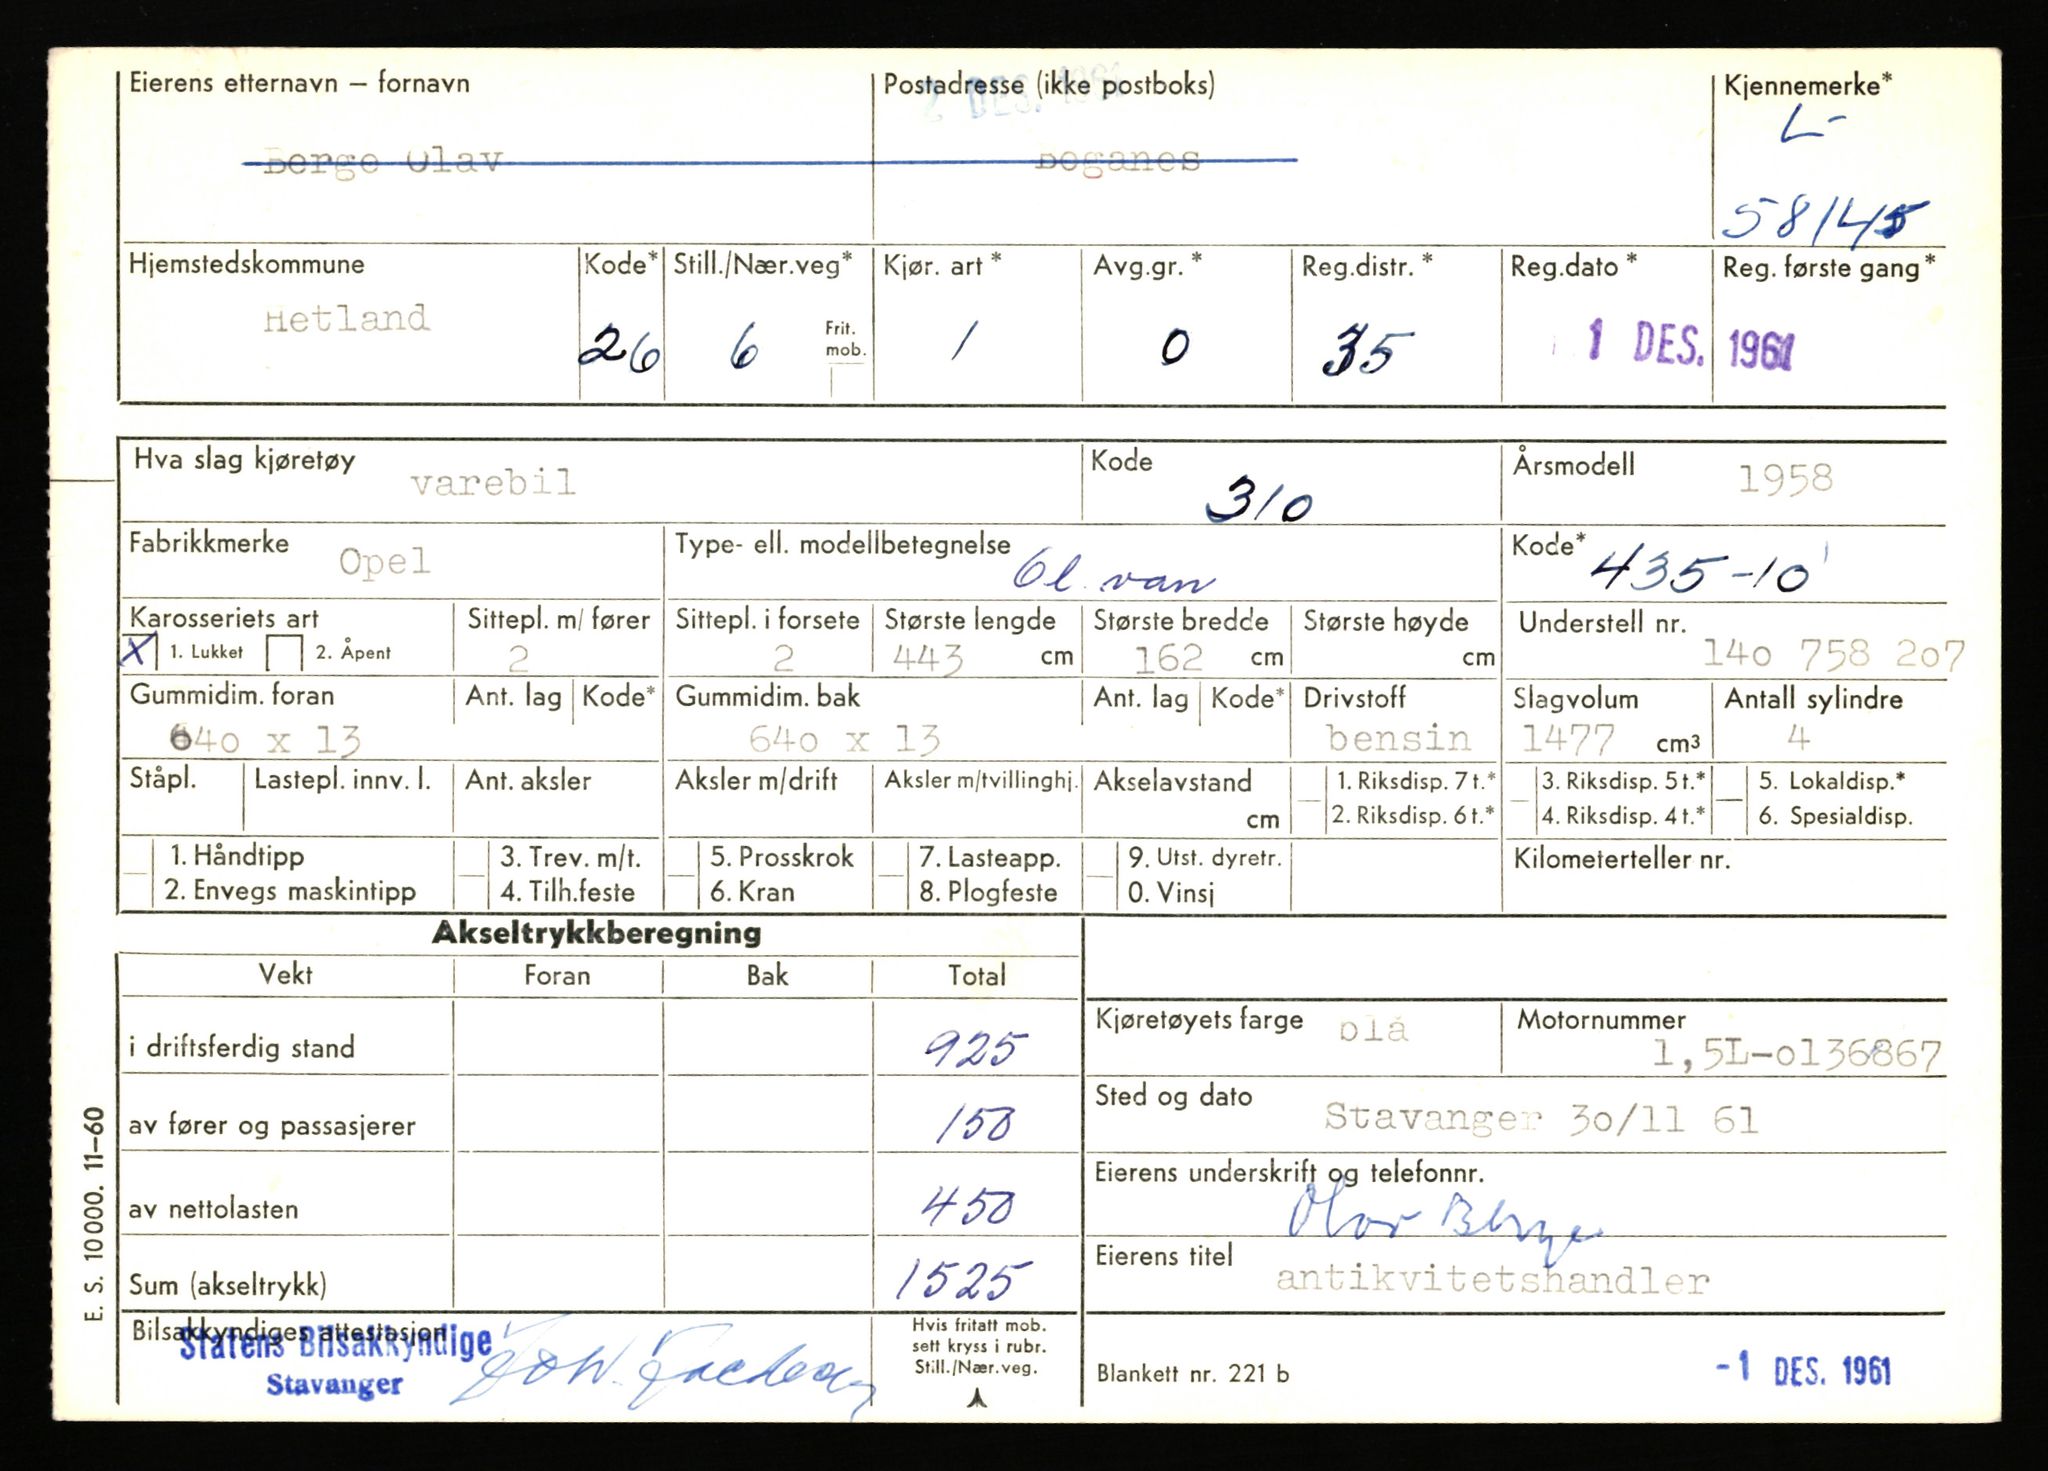 Eierens etternavn – fornavn
Postadresse (ikke postboks)
2 DES. 1961
Kjennemerke*
L-
Berge Olav
Boganes
58145
Hjemstedskommune
Kode*
Still./Nær.veg*
Kjør. art *
Avg.gr. *
Reg.distr. *
Reg.dato *
Reg. første gang*
Hetland
26
6
Frit. mob.
1
0
35
1 DES. 1961
Hva slag kjøretøy
varebil
Kode
310
Årsmodell
1958
Fabrikkmerke
Opel
Type- ell. modellbetegnelse
Ol. van
Kode*
435-10
Karosseriets art
Sittepl. m/ fører
Sittepl. i forsete
Største lengde
Største bredde
Største høyde
Understell nr.
X 1. Lukket
2. Åpent
2
2
443 cm
162 cm
cm
140 758 207
Gummidim. foran
Ant. lag
Kode*
Gummidim. bak
Ant. lag
Kode*
Drivstoff
Slagvolum
Antall sylindre
640 x 13
640 x 13
bensin
1477 cm³
4
Ståpl.
Lastepl. innv. l.
Ant. aksler
Aksler m/drift
Aksler m/tvillinghj.
Akselavstand
cm
1. Riksdisp. 7 t.*
2. Riksdisp. 6 t.*
3. Riksdisp. 5 t.*
4. Riksdisp. 4 t.*
5. Lokaldisp.*
6. Spesialdisp.
1. Håndtipp
2. Envegs maskintipp
3. Trev. m/t.
4. Tilh.feste
5. Prosskrok
6. Kran
7. Lasteapp.
8. Plogfeste
9. Utst. dyretr.
0. Vinsj
Kilometerteller nr.
Akseltrykkberegning
Vekt
Foran
Bak
Total
i driftsferdig stand
925
Kjøretøyets farge
blå
Motornummer
1,5L-0136867
av fører og passasjerer
150
Sted og dato
Stavanger 30/11 61
av nettolasten
450
Eierens underskrift og telefonnr.
Olav Berge
Sum (akseltrykk)
1525
Eierens titel
antikvitetshandler
Bilsakkyndiges attestasjon
Statens Bilsakkyndige
Stavanger
Hvis fritatt mob.
sett kryss i rubr.
Still./Nær.veg.
Blankett nr. 221 b
-1 DES. 1961
E. S. 10000. 11–60